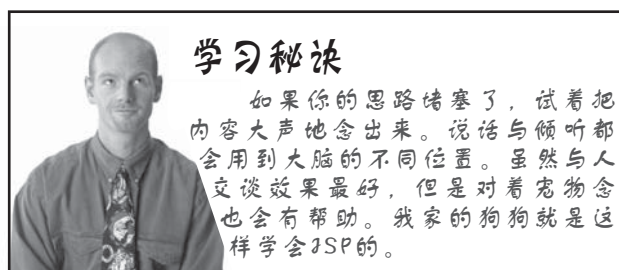 学习秘诀
如果你的思路堵塞了，试着把
内容大声地念出来。说话与倾听都
会用到大脑的不同位置。虽然与人
交谈效果最好，但是对着宠物念
也会有帮助。我家的狗狗就是这
样学会JSP的。